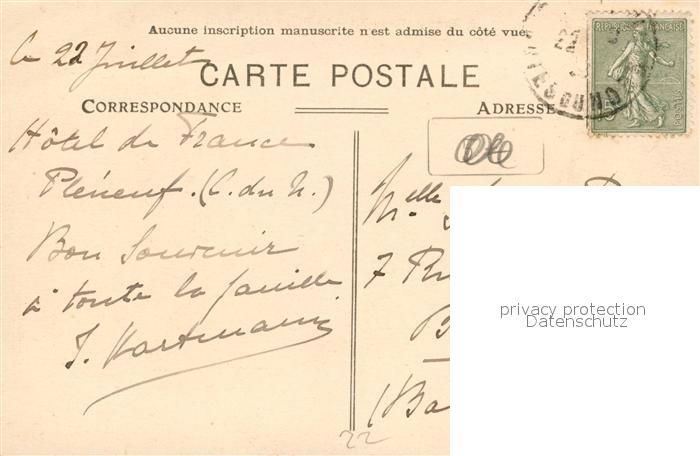 Aucune inscription manuscrite n'est admise du côté vue.
le 22 Juillet
CARTE POSTALE
CORRESPONDANCE
ADRESSE
REPUBLIQUE FRANÇAISE
POSTES
COTES DU NORD
Hôtel de France
Pléneuf. (C. du N.)
Bon Souvenir
à toute la famille
J. Hartmann
Melle
7 Ru
B
(Ba
22
privacy protection
Datenschutz